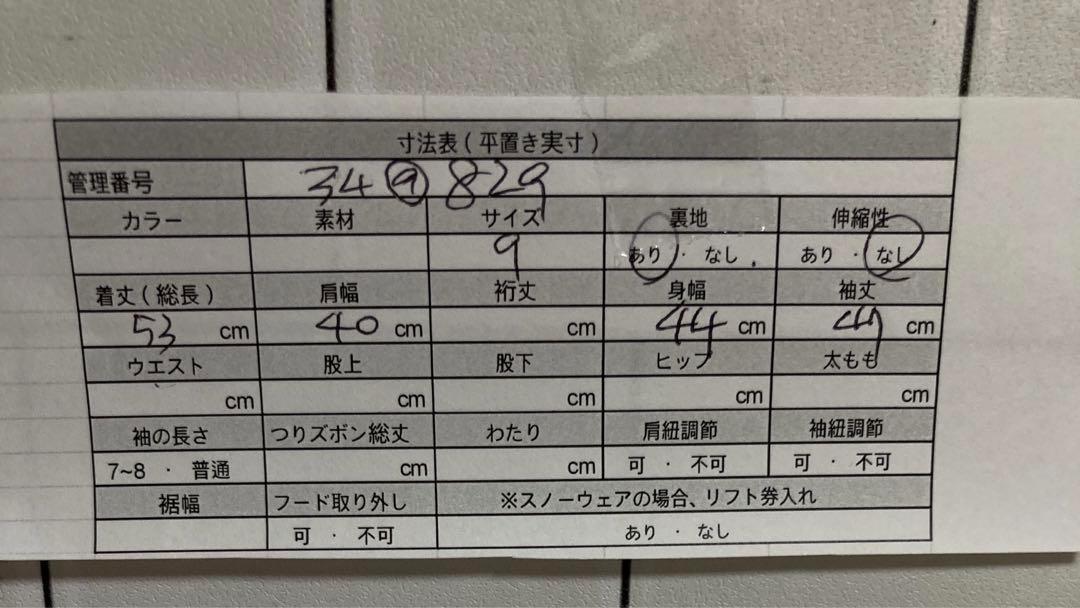 寸法表(平置き実寸)
管理番号 34 ⓐ 829
カラー 素材 サイズ 裏地 伸縮性
9 あり ・ なし あり ・ なし
着丈(総長) 肩幅 裄丈 身幅 袖丈
53 cm 40 cm cm 44 cm cm
ウエスト 股上 股下 ヒップ 太もも
cm cm cm cm cm
袖の長さ つりズボン総丈 わたり 肩紐調節 袖紐調節
7~8 ・ 普通 cm cm 可 ・ 不可 可 ・ 不可
裾幅 フード取り外し ※スノーウェアの場合、リフト券入れ
可 ・ 不可 あり ・ なし